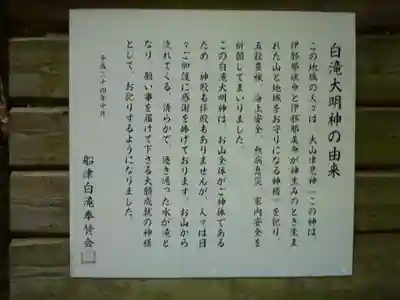 白滝大明神の由来
この地域の人々は、大山津見神(この神は
伊邪那岐命と伊邪那美命が神生みのとき生ま
れた山と地域をお守りになる神様)を祀り、
五穀豊穣、海上安全、無病息災、家内安全を
祈願してまいりました。
この白滝大明神は、お山全体がご神体である
ため、神殿も拝殿もありませんが、人々は日
々ご加護に感謝を捧げております。お山から
流れてくる、清らかで、透き通った水が滝と
なり、願い事を届けて下さる大願成就の神様
として、お祀りするようになりました。
平成二十四年十月
船津白滝奉賛会